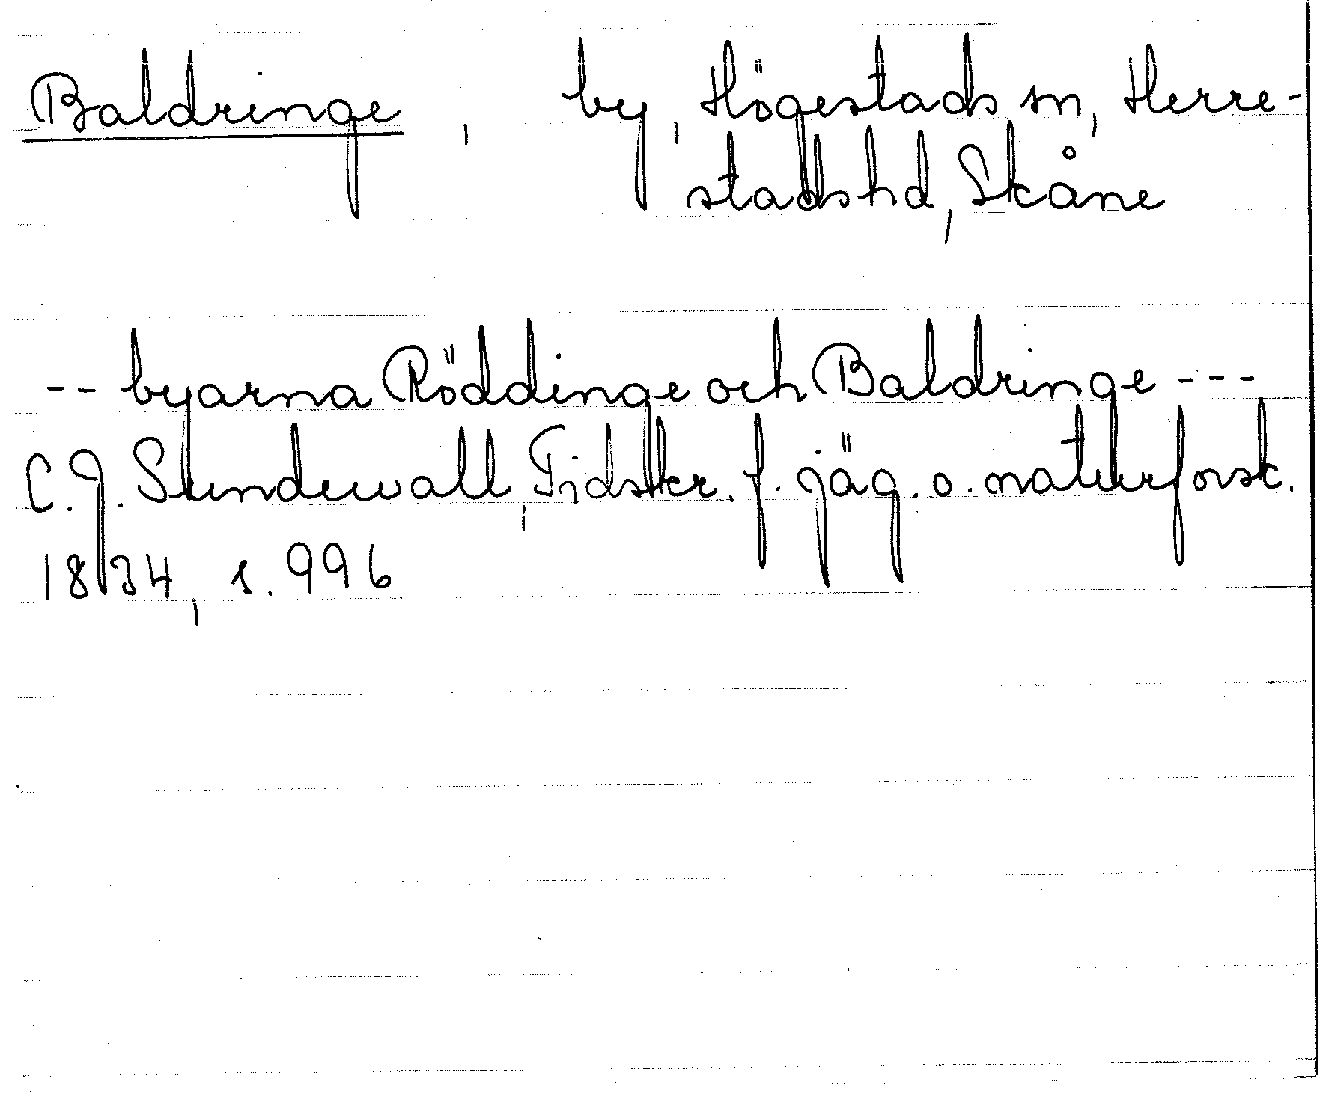 Baldringe, by, Högestads sn, Herre-
stads hd, Skåne
-- byarna Röddinge och Baldringe ---
C.J. Sundewall, Tidskr. f. jäg. o. naturforsk.
1834, s. 996